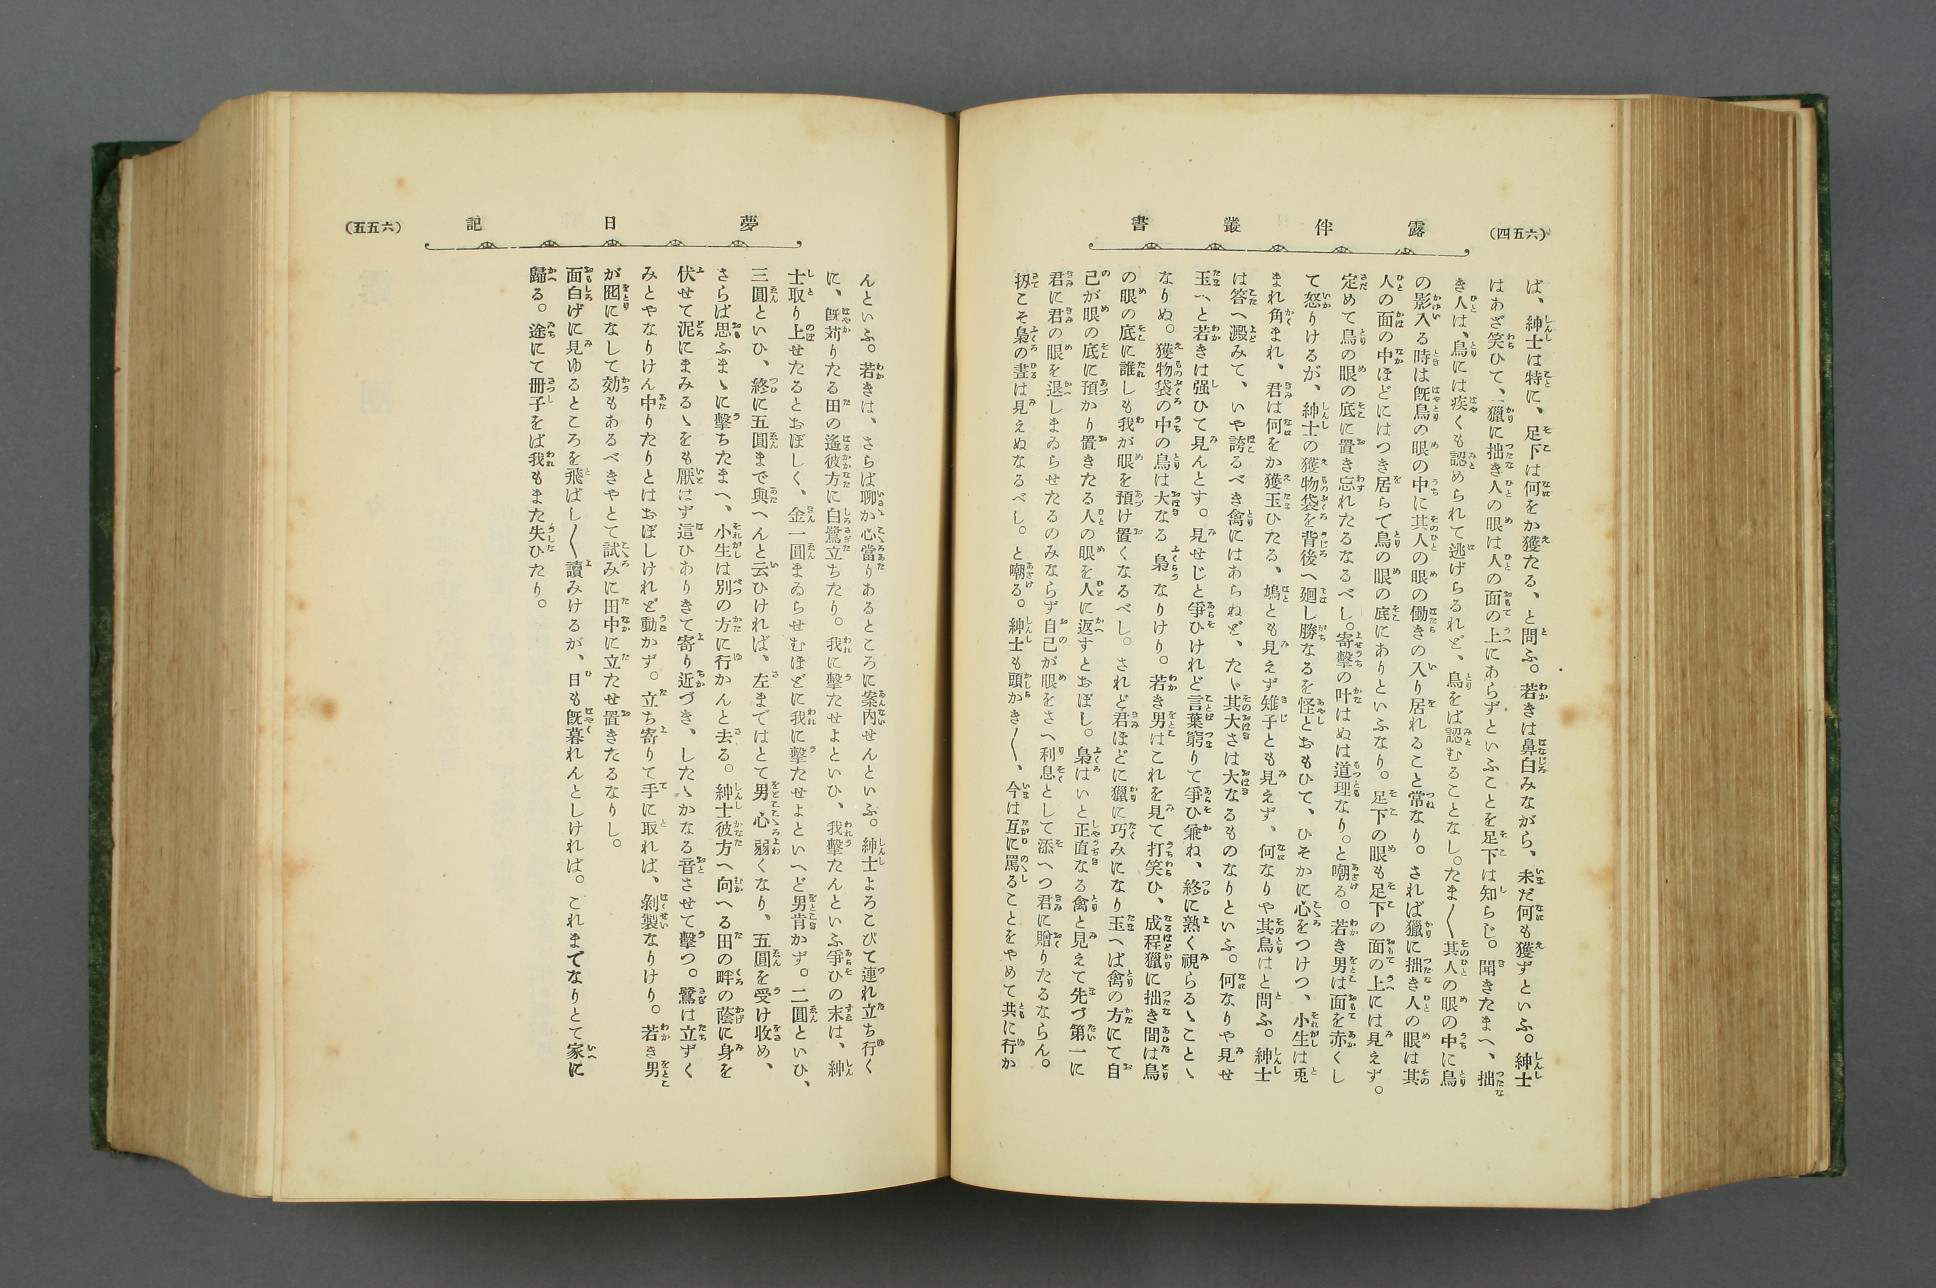 (六五四)
露伴叢書
ば、紳士は特に、足下は何をか獲たる、と問ふ。若きは鼻白みながら、未だ何も獲ずといふ。紳士
はあざ笑ひて、獵に拙き人の眼は人の面の上にあらずといふことを足下は知らじ。聞きたまへ、拙
き人は、鳥には疾くも認められて逃げらるれど、鳥をば認むることなし。たま〳〵其人の眼の中に鳥
の影入る時は既鳥の眼の中に其人の眼の働きの入り居れること常なり。されば獵に拙き人の眼は其
人の面の中ほどにはつき居らで鳥の眼の底にありといふなり。足下の眼も足下の面の上には見えず。
定めて鳥の眼の底に置き忘れたるなるべし。寄擊の叶はぬは道理なり。と嘲る。若き男は面を赤くし
て怒りけるが、紳士の獲物袋を背後へ廻し勝なるを怪とおもひて、ひそかに心をつけつ、小生は兎
まれ角まれ、君は何をか獲玉ひたる、鳩とも見えず雉子とも見えず、何なりや其鳥はと問ふ。紳士
は答へ澱みて、いや誇るべき禽にはあらねど、たゞ其大さは大なるものなりといふ。何なりや見せ
玉へと若きは强ひて見んとす。見せじと爭ひけれど言葉窮りて爭ひ兼ね、終に熟く視らるゝことゝ
なりぬ。獲物袋の中の鳥は大なる梟なりけり。若き男はこれを見て打笑ひ、成程獵に拙き間は鳥
の眼の底に誰しも我が眼を預け置くなるべし。されど君ほどに獵に巧みになり玉へば禽の方にて自
己が眼の底に預かり置きたる人の眼を人に返すとおぼし。梟はいと正直なる禽と見えて先づ第一に
君に君の眼を退しまゐらせたるのみならず自己が眼をさへ利息として添へつ君に贈りたるならん。
扨こそ梟の晝は見えぬなるべし。と嘲る。紳士も頭かき〳〵、今は互に罵ることをやめて共に行か
夢日記
(六五五)
んといふ。若きは、さらば聊か心當りあるところに案內せんといふ。紳士よろこびて連れ立ち行く
に、既苅りたる田の遙彼方に白鷺立ちたり。我に擊たせよといひ、我擊たんといふ爭ひの末は、紳
士取り上せたるとおぼしく、金一圓まゐらせむほどに我に擊たせよといへど男肯かず。二圓といひ、
三圓といひ、終に五圓まで與へんと云ひければ、左まではとて男心弱くなり、五圓を受け收め、
さらば思ふまゝに擊ちたまへ、小生は別の方に行かんと去る。紳士彼方へ向へる田の畔の蔭に身を
伏せて泥にまみるゝをも厭はず這ひありきて寄り近づき、したゝかなる音させて擊つ。鷺は立ずく
みとやなりけん中りたりとはおぼしけれど動かず。立ち寄りて手に取れば、剝製なりけり。若き男
が囮になして効もあるべきやとて試みに田中に立たせ置きたるなりし。
面白げに見ゆるところを飛ばし〳〵讀みけるが、日も既暮れんとしければ。これまでなりとて家に
歸る。途にて冊子をば我もまた失ひたり。